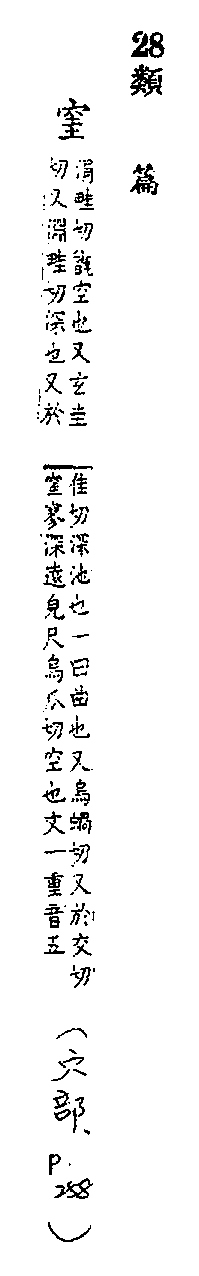 28 類篇
窐
涓畦切甑空也又玄圭
切又淵畦切深也又於
佳切深池也一曰曲也又烏蝸切又於交切
窐寥深遠皃尺烏瓜切空也文一重音五
(穴部、P.288)